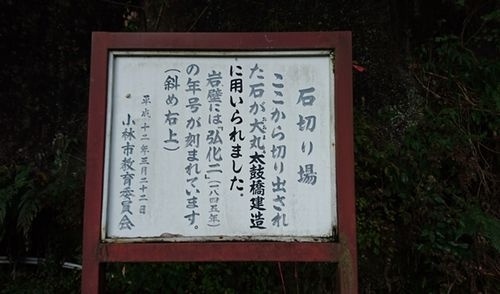 石切り場
ここから切り出され
た石が大丸太鼓橋建造
に用いられました。
岩壁には「弘化二」(一八四五年)
の年号が刻まれています。
(斜め右上)
平成十二年三月二十二日
小林市教育委員会